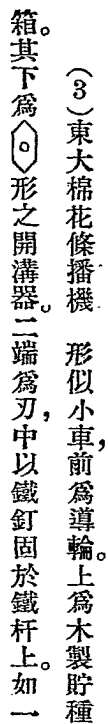 (3)東大棉花條播機　形似小車,前爲導輪。上爲木製貯種
箱。其下爲形之開溝器。二端爲刃,中以鐵釘固於鐵杆上。如一